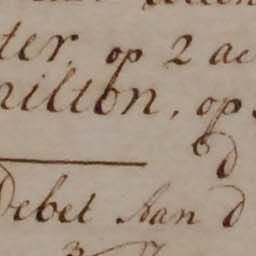 ter, op 2 ac
milton, op
d
Debet Aan d